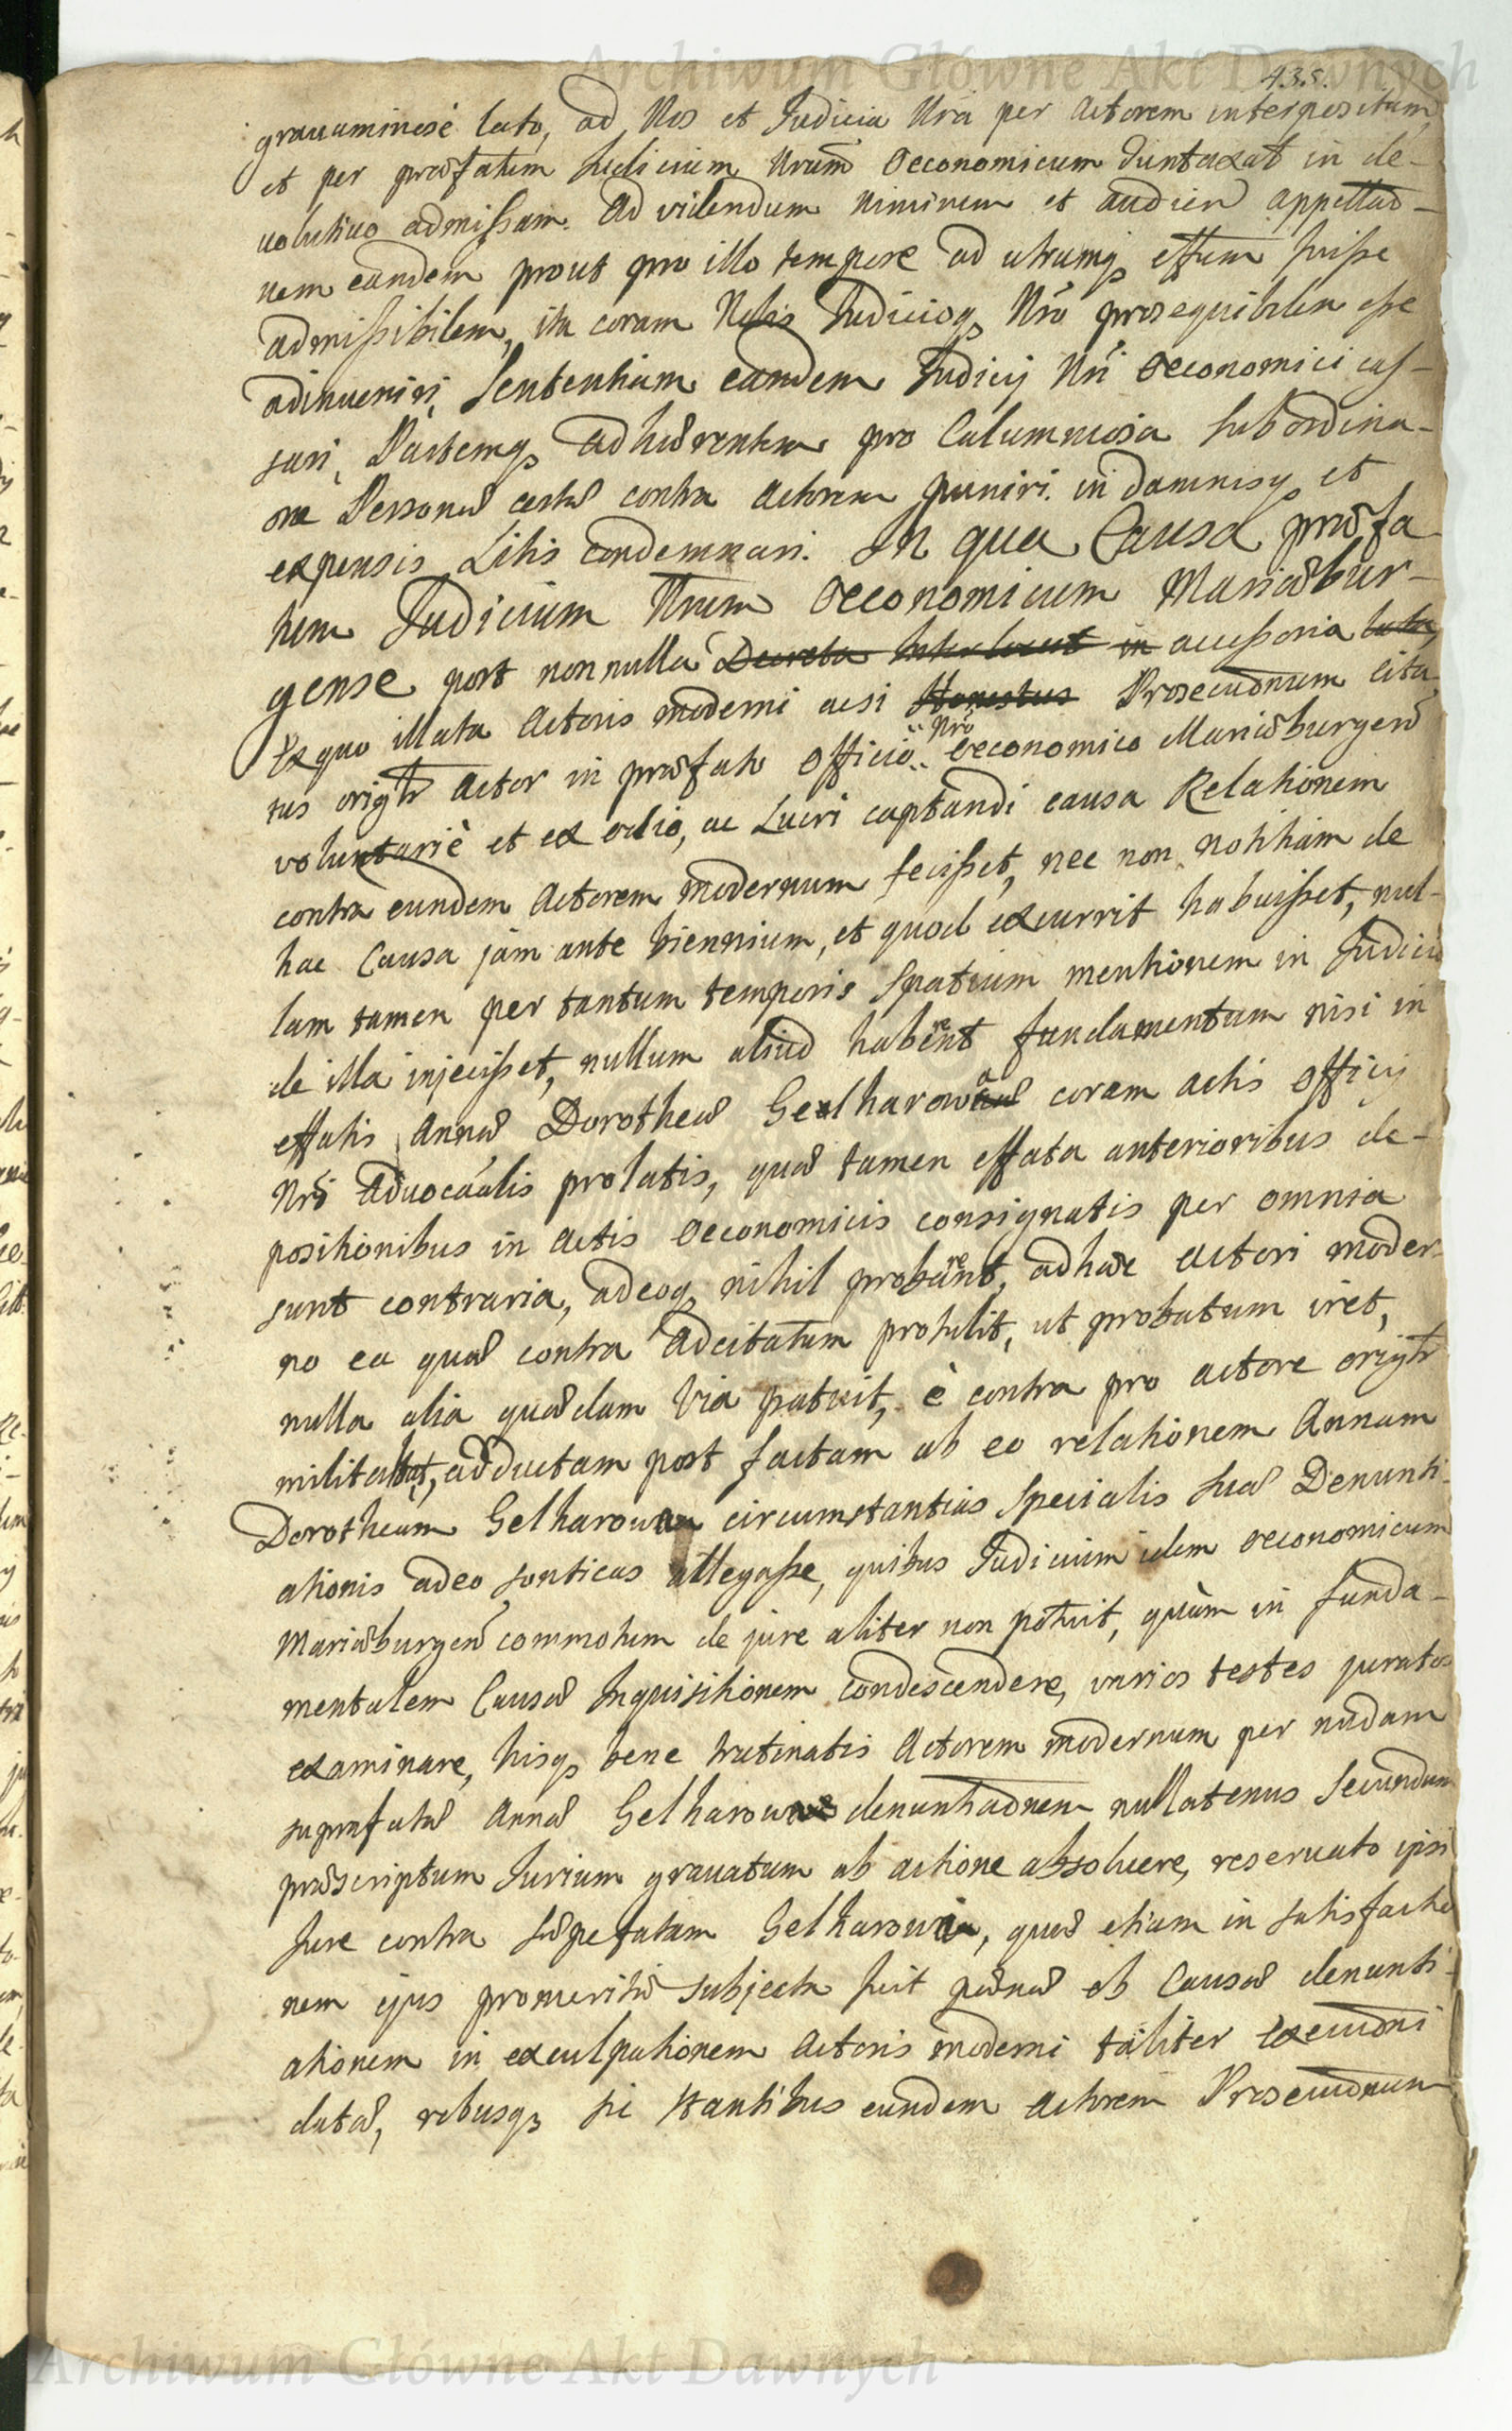 Archiwum Główne Akt Dawnych
435.
gravaminosè lato, ad Nos et Judicia Nra per Actorem interpositam
et per praefatum Judicium Nrum Oeconomicum duntaxat in de-
volutivo admissam. Ad videndum nimirum et audien appellao-
nem eandem prout pro illo tempore ad utrumq effum fuisse
admissibilem, ita coram Nobis Judicioq Nro prosequibilem esse
adinveniri, Sententiam eandem Judicij Nri Oeconomici cas-
sari, Partemq adhaerentem pro Calumniosa subordina-
one Personae certae contra Actorem puniri. in damnisq et
expensis Litis condemnari. In qua Causa praefa
tum Judicium Nrum Oeconomicum Mariaebur-
gense post nonnulla Decreta Interlocut in accessoria lata
Ex quo illata Actoris moderni acsi Honestus Prosecuonum cita
tus origtr Actor in praefato Officio Nro oeconomico Mariaeburgen
voluntariè et ex odio, ac Lucri captandi causa Relationem
contra eundem Actorem modernum fecisset, nec non notitiam de
hac Causa jàm ante biennium, et quod excurrit habuisset, nul-
lam tamen per tantum temporis Spatium mentionem in Judicio
de illa injecisset, nullum aliud haberent fundamentum nisi in
effatis Annae Dorotheae Gelharowa coram actis Officij
Nri Advocialis prolatis, quae tamen effata anterioribus de-
positionibus in Actis Oeconomicis consignatis per omnia
sunt contraria, adeoq nihil probarent, adhaec Actori moder-
no ea quae contra Adcitatum protulit, ut probatum iret,
nulla alia quaedam Via patuit, è contra pro actore origtr
militabat, adductam post factam ab eo relationem Annam
Dorotheam Gelharowa circumstantias Specialis suae Denunti-
ationis adeo sonticas allegasse, quibus Judicium idem oeconomicum
Mariaeburgen commotum de jure aliter non potuit, quàm in funda-
mentalem Causae Inquisitionem condescendere, varios testes juratos
examinare, hisq bene trutinatis Actorem modernum per nudam
suprafatae Annae Gelharowa denuntiaonem nullatenus secundum
praescriptum Jurium gravatum ab actione absolvere, reservato ipsi
Jure contra saepefatam Gelharowa, quae etiam in satisfactio
nem ejus promeritae subjecta fuit paenae ob Causae denunti-
ationem in exculpationem Actoris moderni taliter Execuoni
datae, rebusq sic stantibus eundem Actorem Prosecuonum
Archiwum Główne Akt Dawnych